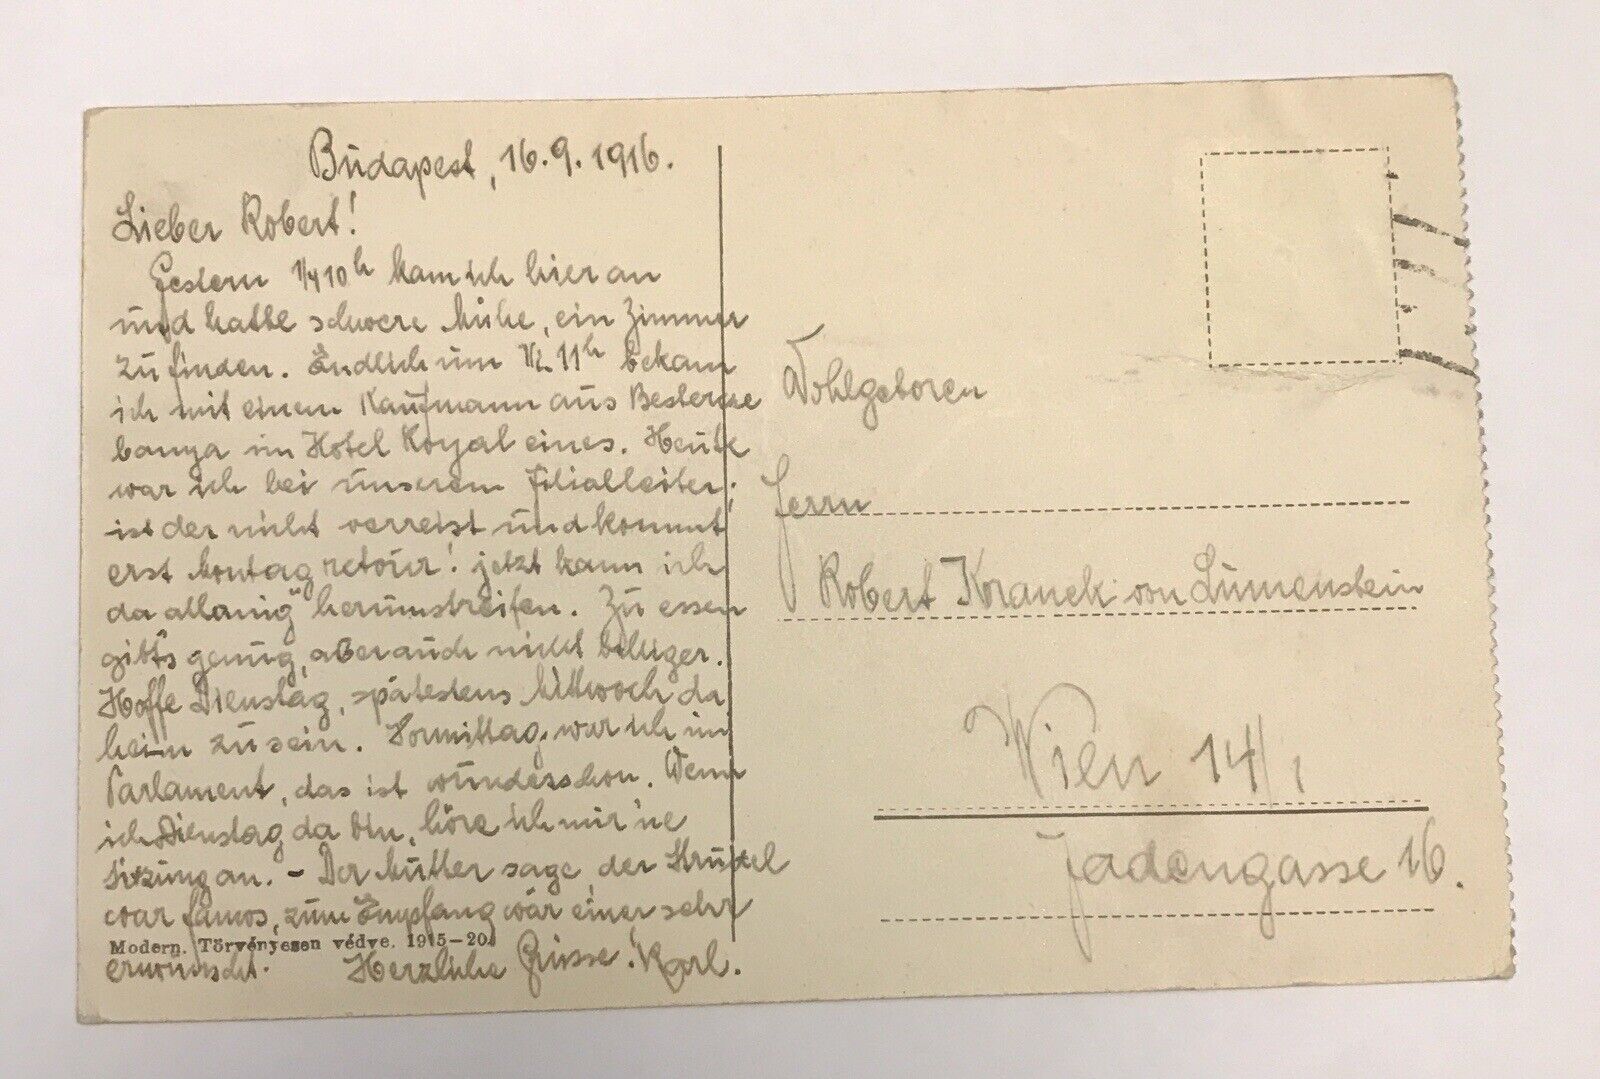 Budapest, 16.9.1916.
Lieber Robert!
Gestern 1/410h kam ich hier an
und hatte schwere Mühe, ein Zimmer
zu finden. Endlich um 1/2 11h bekam
ich mit einem Kaufmann aus Besterce
banya im Hotel Royal eines. Heute
war ich bei unserem Filialleiter;
ist der nicht verreist und kommt
erst Montag retour! jetzt kann ich
da allanig" herumstreifen. Zu essen
gibt's genug, aber auch nicht billiger.
Hoffe Dienstag, spätestens Mittwoch da
heim zu sein. Vormittag war ich im
Parlament, das ist wunderschön. Wenn
ich Dienstag da bin, höre ich mir 'ne
Sitzung an. - Der Mutter sage, der Strudel
war famos, zum Empfang wär einer sehr
erwünscht. Herzliche Grüsse! Karl.
Modern. Törvényesen védve. 1915-20.
Wohlgeboren
Herrn
Robert Kranek von Lumenstein
Wien 14/1
Jadengasse 16.